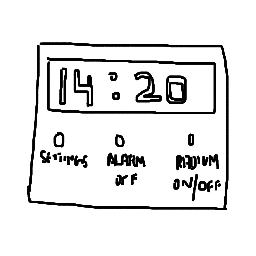 14:20
SETTINGS
ALARM
OFF
RADIUM
ON/OFF